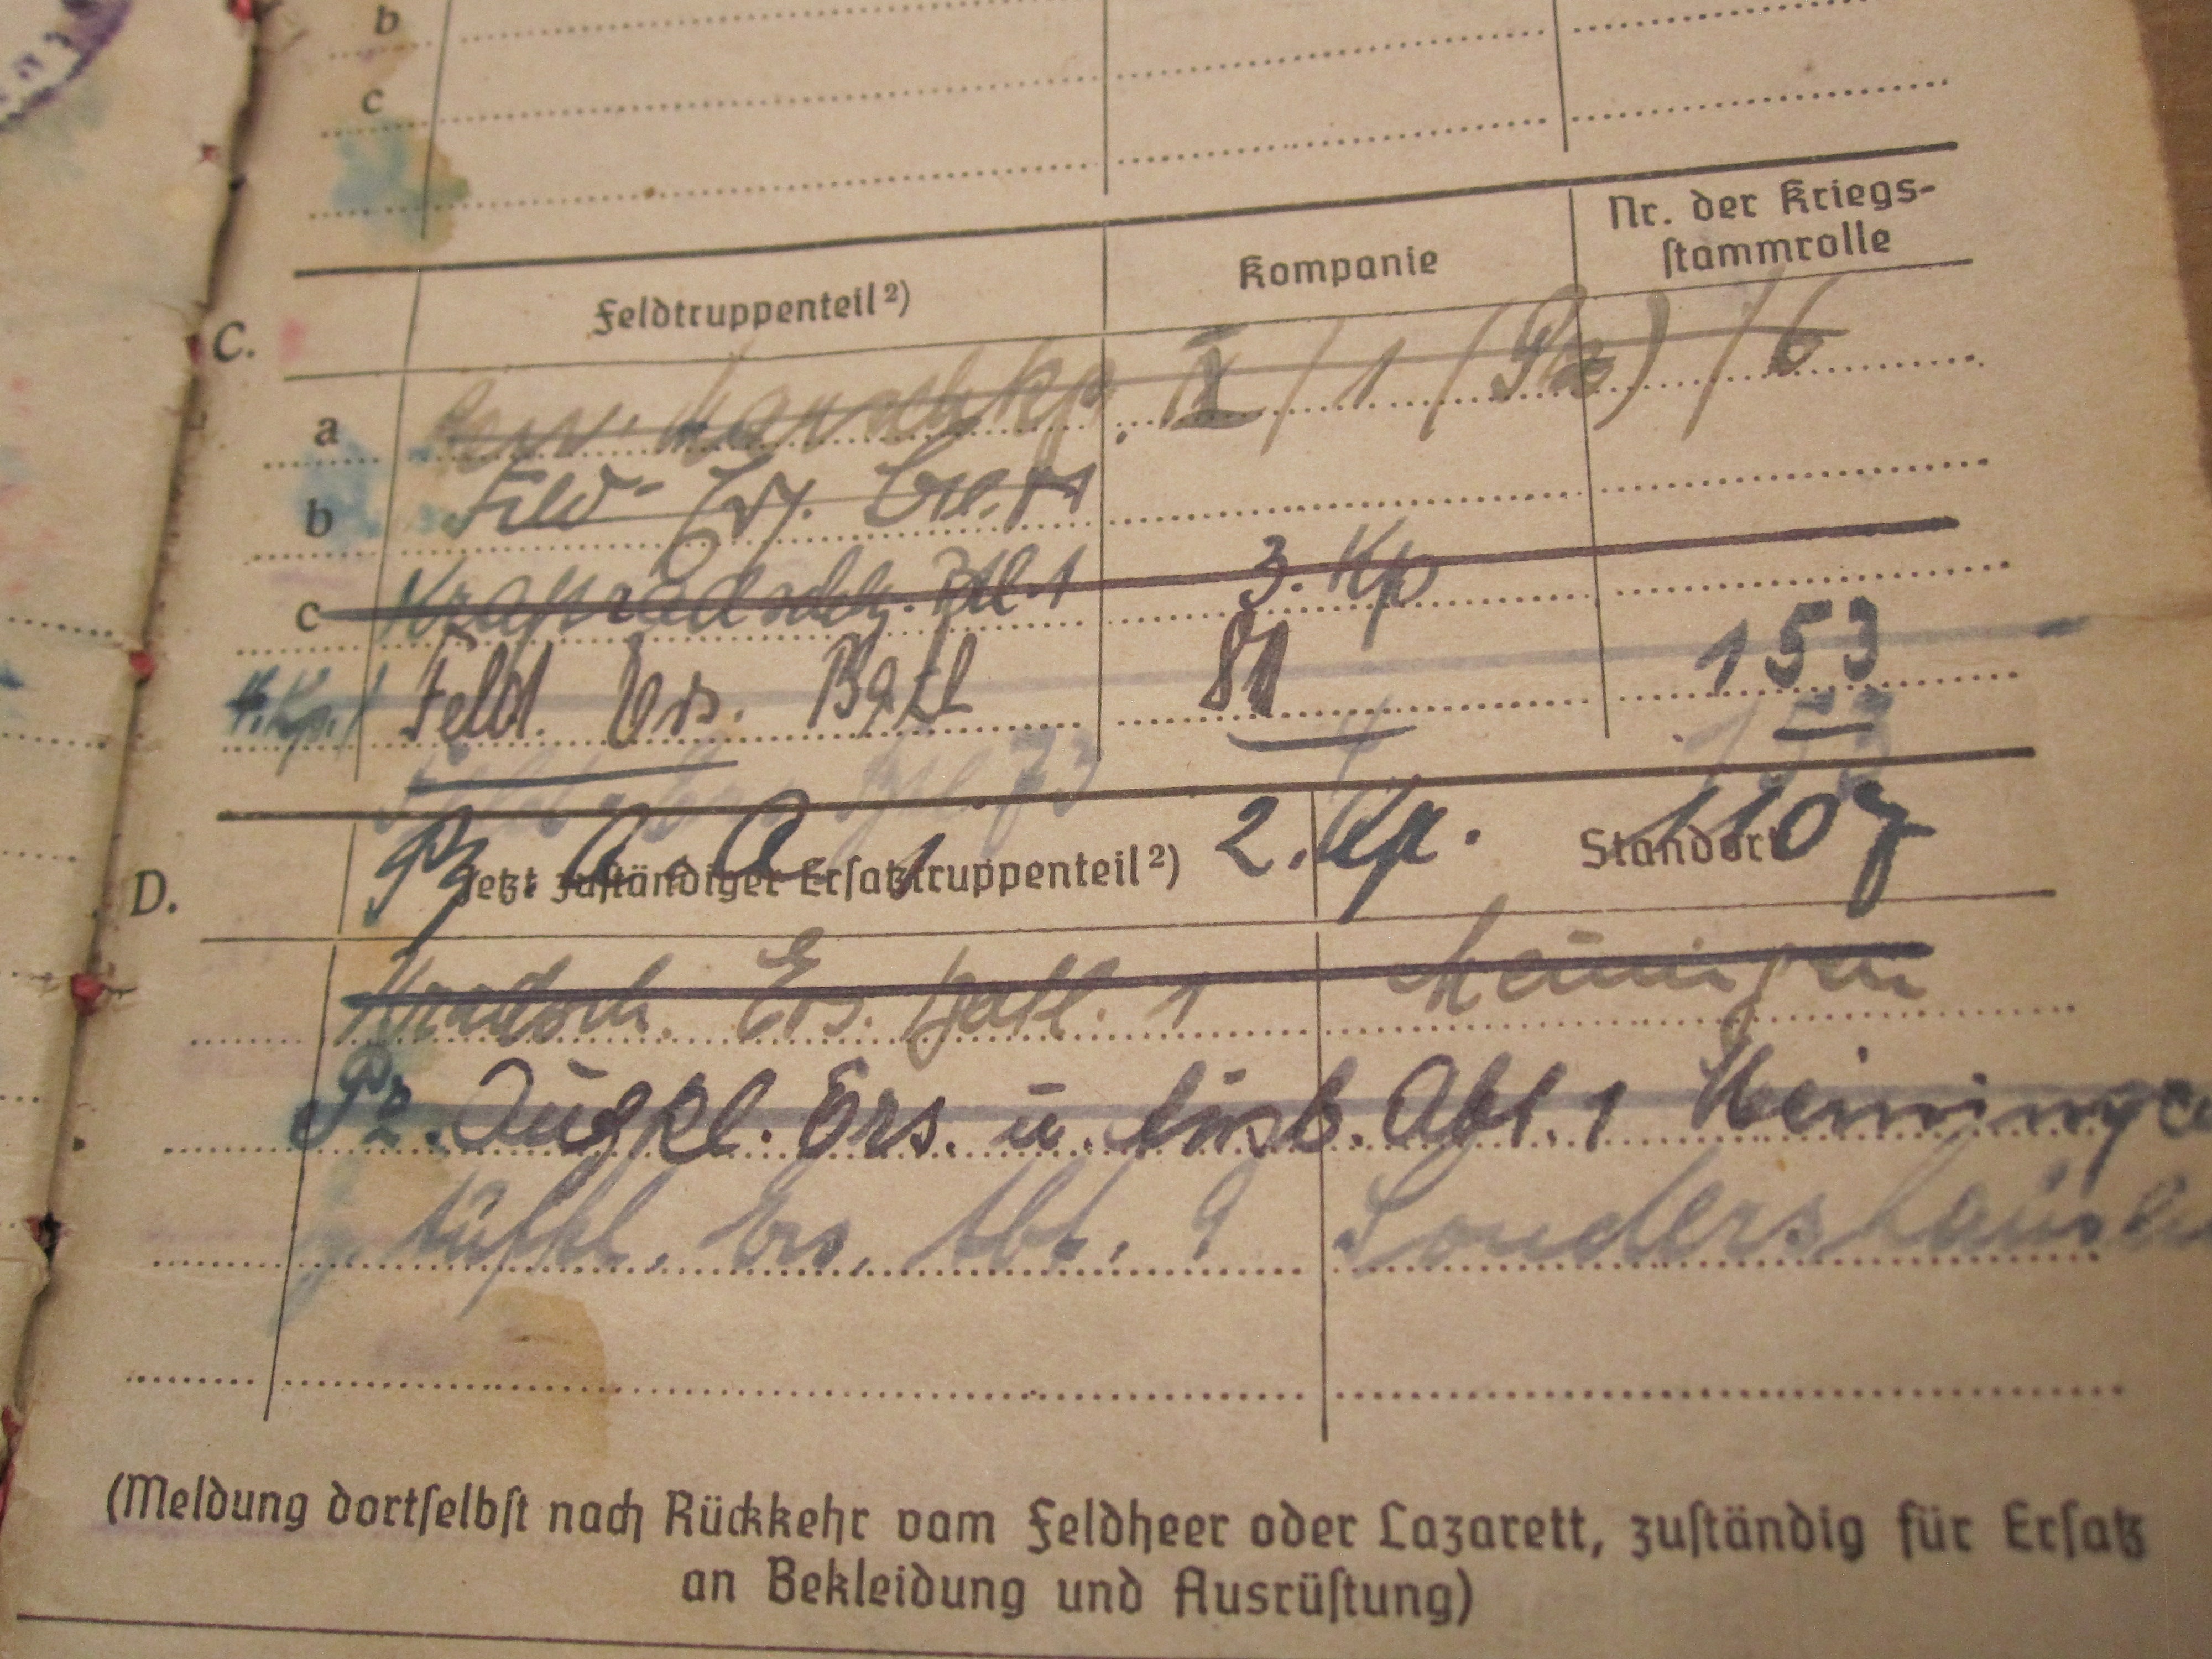 b
c
C. Feldtruppenteil²) Kompanie Nr. der Kriegs-
stammrolle
a Marschkp. II / 1 ( ) / 6
b Feld-
c Kraftradsch. Btl. 1 3. Kp
4. Kp. Feld. Ers. Batl 81 153
Feld 4 153
Pz. A. A. 1 2. Kp. 1107
D. Jetzt zuständiger Ersatztruppenteil²) Standort
Kradsch. Ers. Batl. 1 Meiningen
Pz. Aufkl. Ers. u. Ausb. Abt. 1 Meiningen
Aufkl. Ers. Abt. 9 Sondershausen
(Meldung dortselbst nach Rückkehr vom Feldheer oder Lazarett, zuständig für Ersatz
an Bekleidung und Ausrüstung)